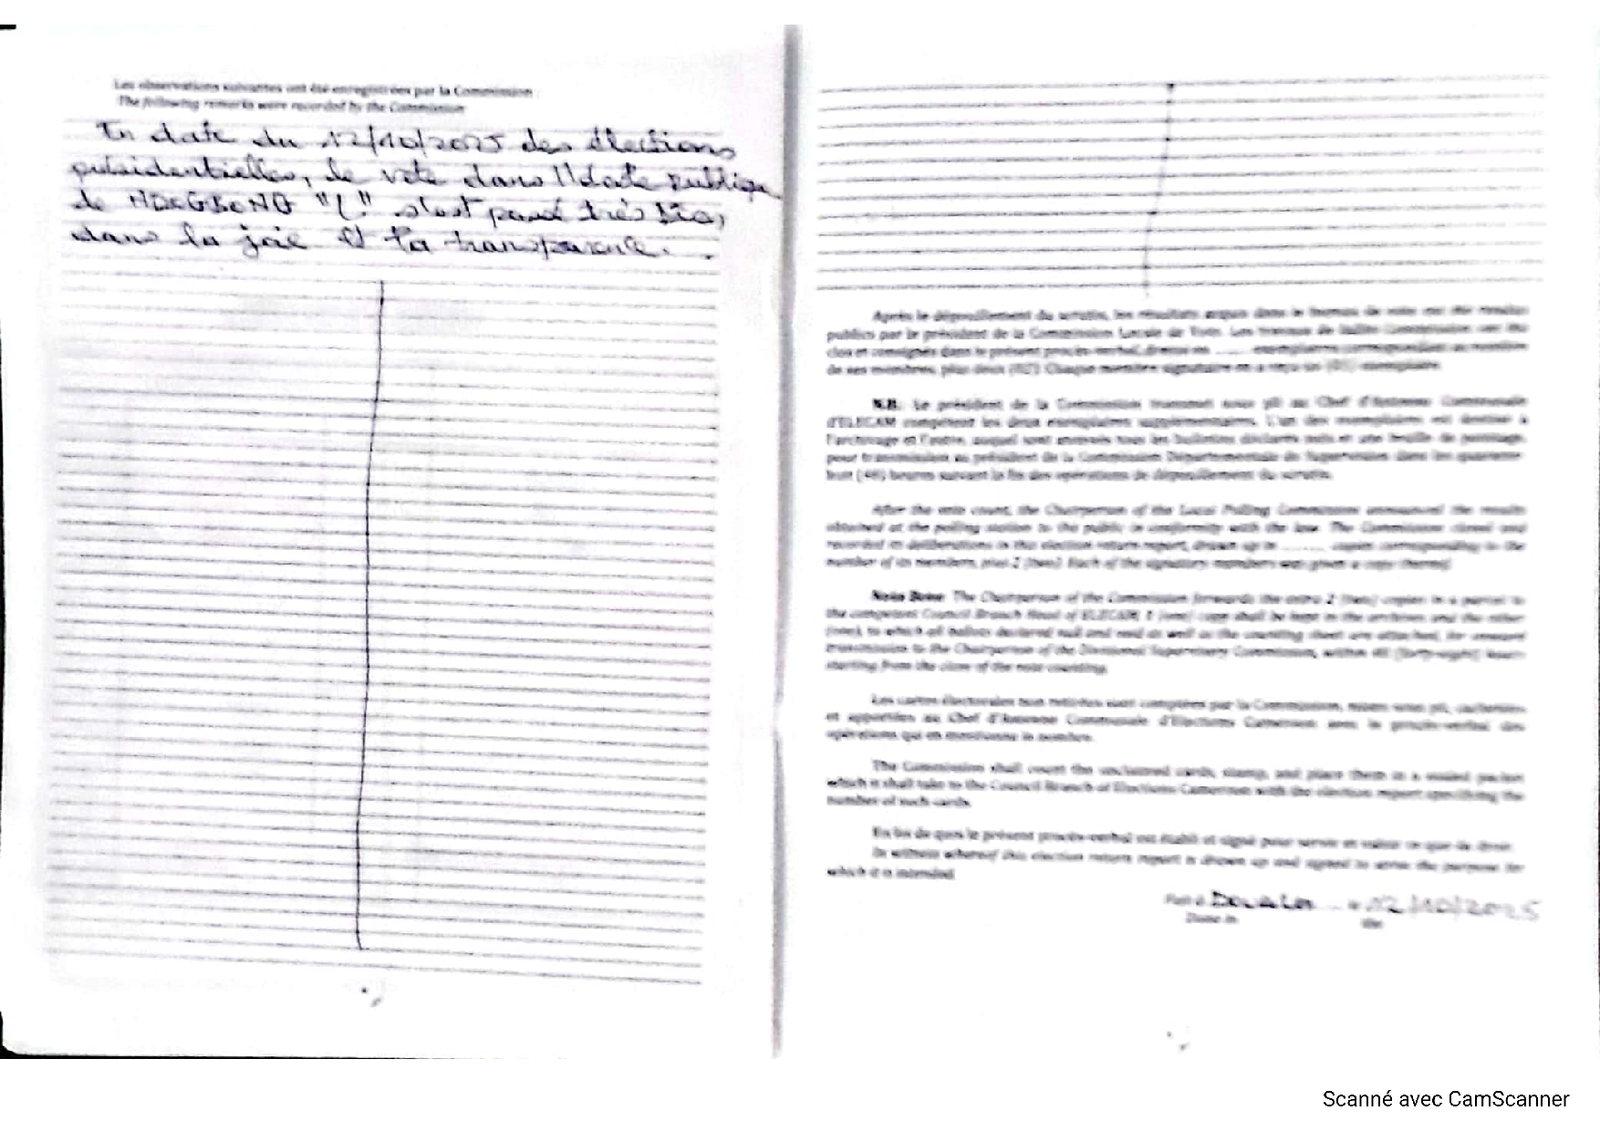 Les observations suivantes ont été enregistrées par la Commission
The following remarks were recorded by the Commission
En date du 12/10/2025 des élections
présidentielles, le vote dans
de s'est passé très bien,
dans la joie et la transparence.
Après le dépouillement du scrutin, les résultats acquis dans le bureau de vote ont été rendus
publics par le président de la Commission Locale de Vote. Les travaux de ladite Commission ont été
clos et consignés dans le présent procès-verbal, dressé en ........ exemplaires correspondant au nombre
de ses membres, plus deux (02). Chaque membre signataire en a reçu un (01) exemplaire.
N.B. Le président de la Commission transmet sous pli au Chef d'Antenne Communale
d'ELECAM compétent les deux exemplaires supplémentaires. L'un des exemplaires est destiné à
l'archivage et l'autre, auquel sont annexés tous les bulletins déclarés nuls et une feuille de pointage,
pour transmission au président de la Commission Départementale de Supervision dans les quarante-
huit (48) heures suivant la fin des opérations de dépouillement du scrutin.
After the vote count, the Chairperson of the Local Polling Commission announced the results
obtained at the polling station to the public in conformity with the law. The Commission closed and
recorded its deliberations in this election return report, drawn up in ........ copies corresponding to the
number of its members, plus 2 (two). Each of the signatory members was given a copy thereof.
Nota Bene: The Chairperson of the Commission forwards the extra 2 (two) copies in a parcel to
the competent Council Branch Head of ELECAM; 1 (one) copy shall be kept in the archives and the other
(one), to which all ballots declared null and void as well as the counting sheet are attached, for onward
transmission to the Chairperson of the Divisional Supervisory Commission, within 48 (forty-eight) hours
starting from the close of the vote counting.
Les cartes électorales non retirées sont comptées par la Commission, mises sous pli, cachetées
et apportées au Chef d'Antenne Communale d'Elections Cameroon avec le procès-verbal des
opérations qui en mentionne le nombre.
The Commission shall count the unclaimed cards, stamp, and place them in a sealed packet
which it shall take to the Council Branch of Elections Cameroon with the election report specifying the
number of such cards.
En foi de quoi le présent procès-verbal est établi et signé pour servir et valoir ce que de droit.
In witness whereof this election return report is drawn up and signed to serve the purpose for
which it is intended.
Fait à Douala 12/10/2025
Done in the
Scanné avec CamScanner